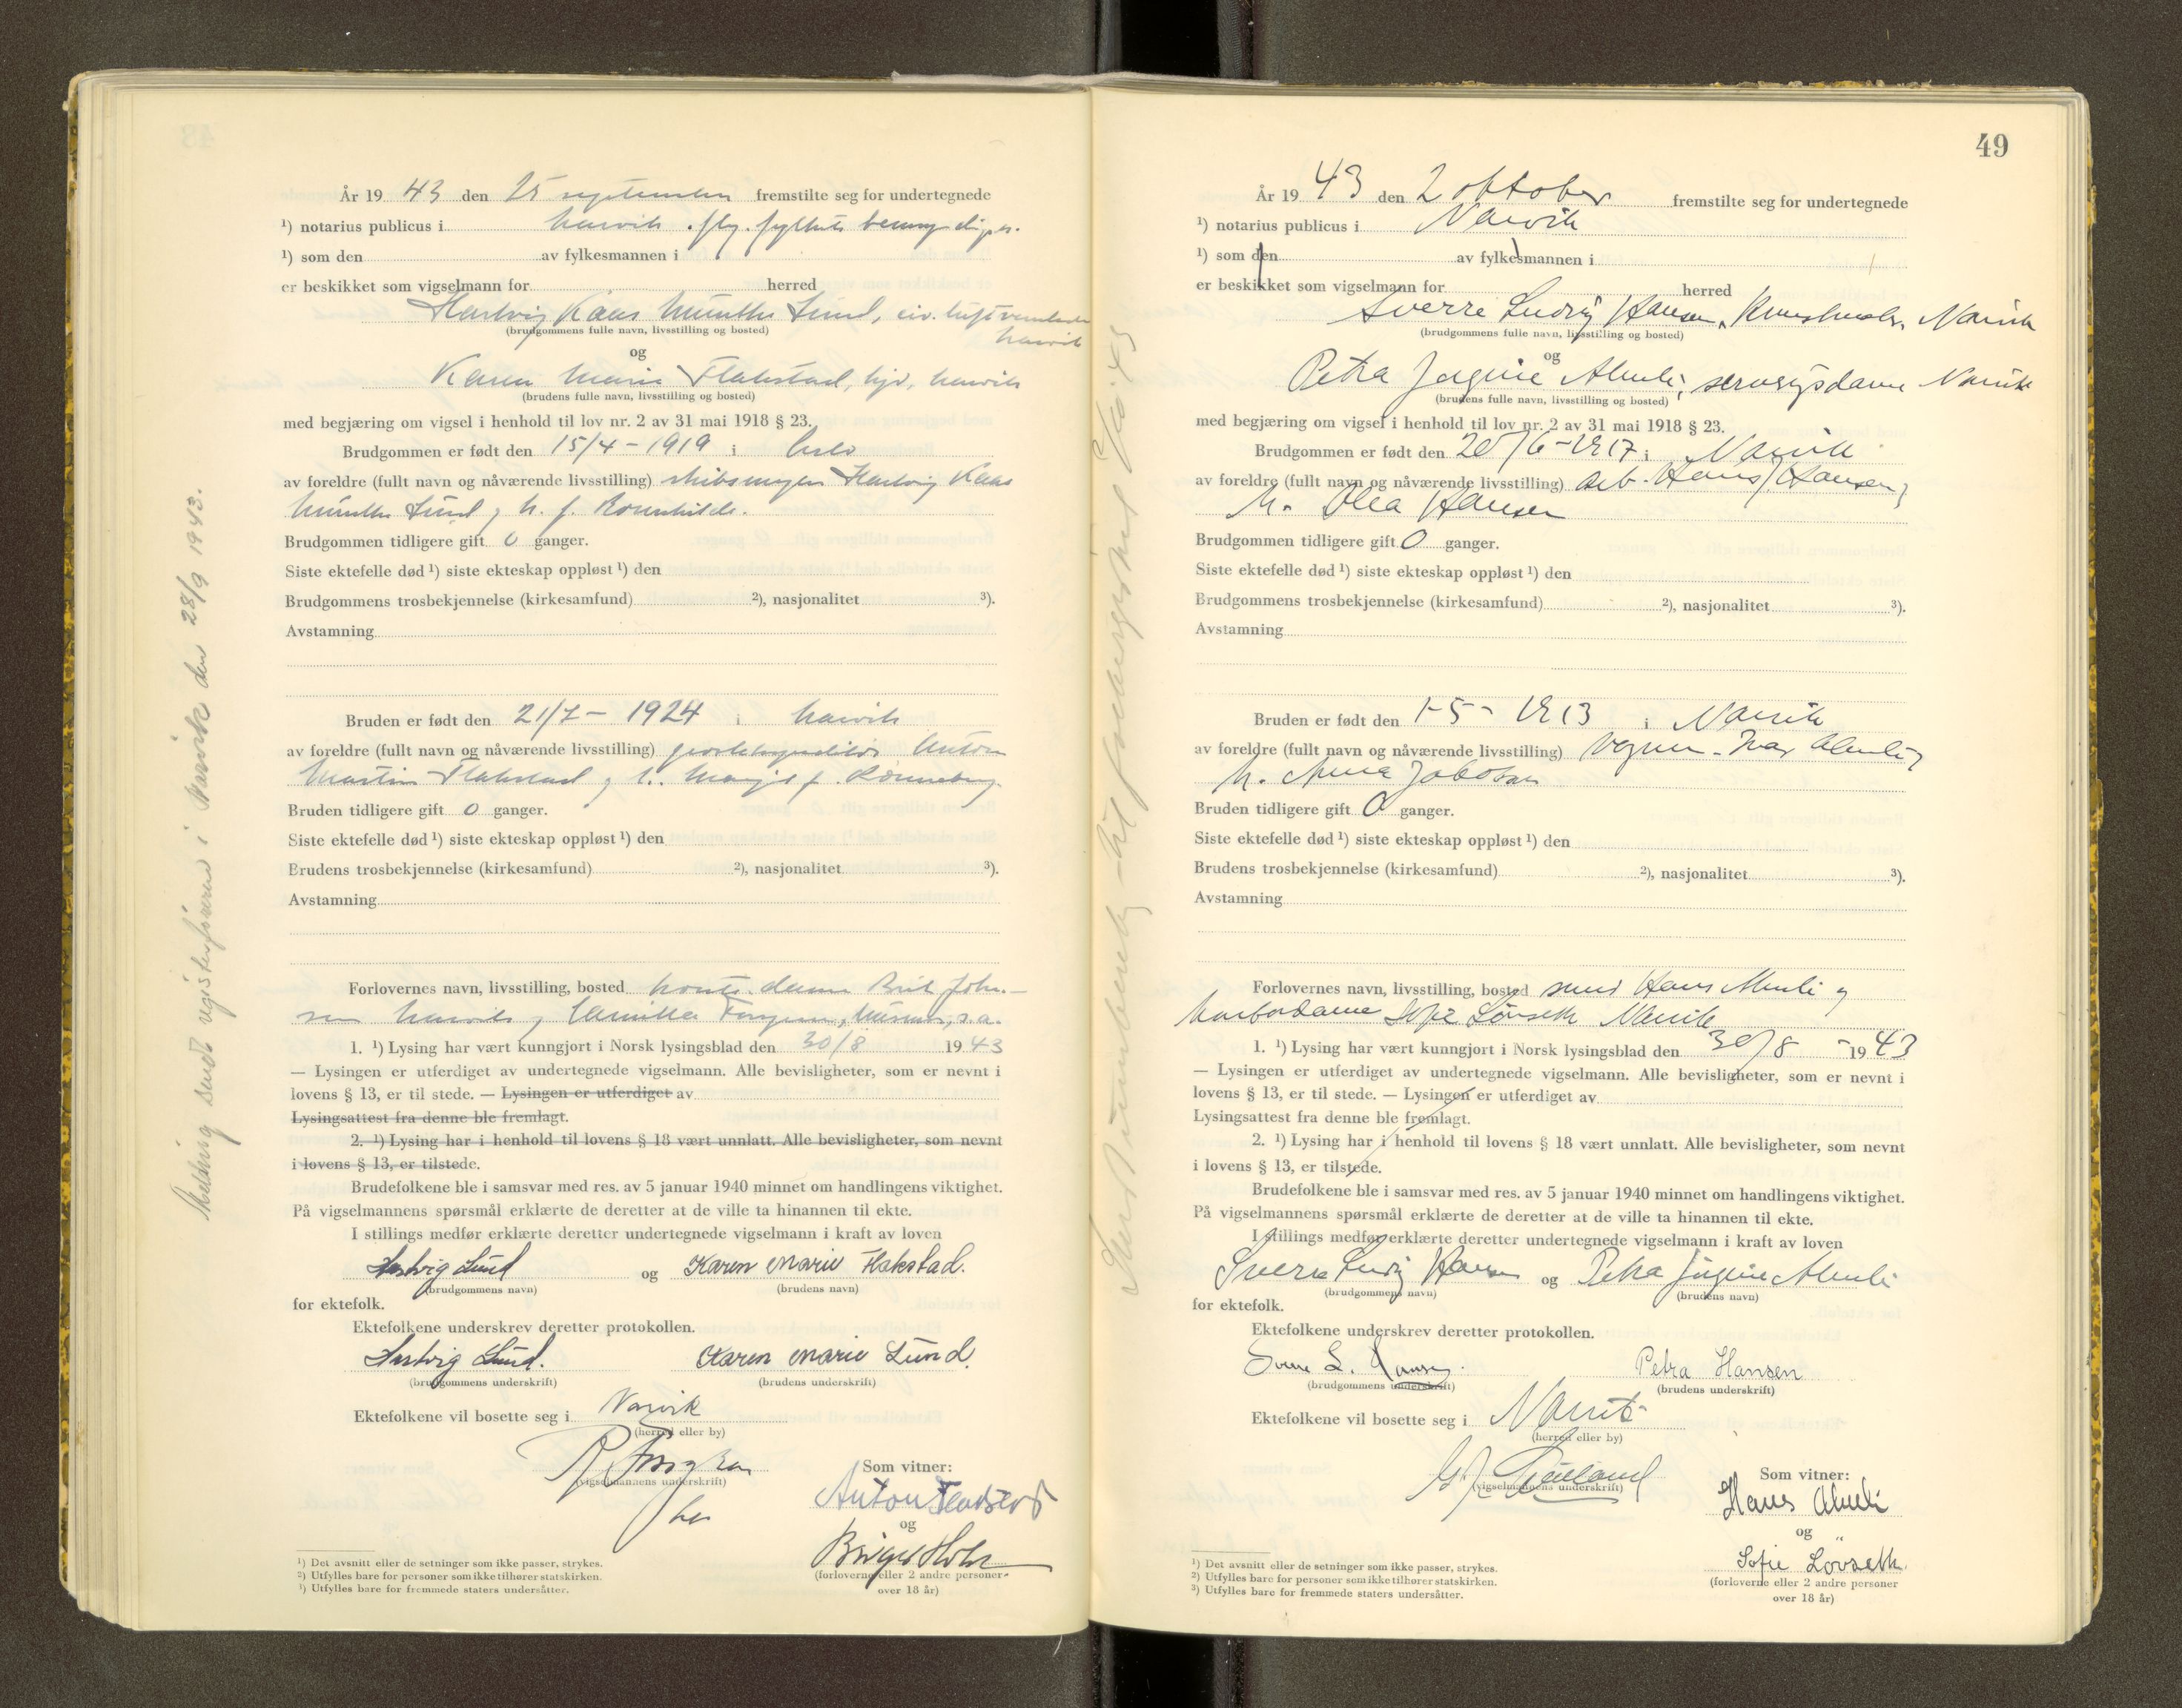 År 19 43 den 25 september fremstilte seg for undertegnede
¹) notarius publicus i Narvik
¹) som den av fylkesmannen i
er beskikket som vigselmann for herred
Hartvig Kaas Munthe Lund, siv.
Narvik
(brudgommens fulle navn, livsstilling og bosted)
og
Karen Marie Flakstad, Narvik
(brudens fulle navn, livsstilling og bosted)
med begjæring om vigsel i henhold til lov nr. 2 av 31 mai 1918 § 23.
Brudgommen er født den 15/4 - 1919 i Oslo
av foreldre (fullt navn og nåværende livsstilling) Hartvig Kaas
Munthe Lund og h. f.
Brudgommen tidligere gift 0 ganger.
Siste ektefelle død ¹) siste ekteskap oppløst ¹) den
Brudgommens trosbekjennelse (kirkesamfund) ²), nasjonalitet ³).
Avstamning
Bruden er født den 21/7 - 1924 i Narvik
av foreldre (fullt navn og nåværende livsstilling) Anton
Martin Flakstad og h. f.
Bruden tidligere gift 0 ganger.
Siste ektefelle død ¹) siste ekteskap oppløst ¹) den
Brudens trosbekjennelse (kirkesamfund) ²), nasjonalitet ³).
Avstamning
Forlovernes navn, livsstilling, bosted kont. dame Brit John-
sen Narvik og Camilla s. a.
1. ¹) Lysing har vært kunngjort i Norsk lysingsblad den 30/8 1943
— Lysingen er utferdiget av undertegnede vigselmann. Alle bevisligheter, som er nevnt i
lovens § 13, er til stede. — Lysingen er utferdiget av
Lysingsattest fra denne ble fremlagt.
2. ¹) Lysing har i henhold til lovens § 18 vært unnlatt. Alle bevisligheter, som nevnt
i lovens § 13, er tilstede.
Brudefolkene ble i samsvar med res. av 5 januar 1940 minnet om handlingens viktighet.
På vigselmannens spørsmål erklærte de deretter at de ville ta hinannen til ekte.
I stillings medfør erklærte deretter undertegnede vigselmann i kraft av loven
Hartvig Lund og Karen Marie Flakstad.
(brudgommens navn) (brudens navn)
for ektefolk.
Ektefolkene underskrev deretter protokollen.
Hartvig Lund. Karen Marie Lund.
(brudgommens underskrift) (brudens underskrift)
Ektefolkene vil bosette seg i Narvik
(herred eller by)
(vigselmannens underskrift)
Som vitner:
Anton
og
Birger Holm
(forloverne eller 2 andre personer
over 18 år)
¹) Det avsnitt eller de setninger som ikke passer, strykes.
²) Utfylles bare for personer som ikke tilhører statskirken.
³) Utfylles bare for fremmede staters undersåtter.
Melding sendt registerføreren i Narvik den 28/9 1943.
49
År 19 43 den 2 oktober fremstilte seg for undertegnede
¹) notarius publicus i Narvik
¹) som den av fylkesmannen i
er beskikket som vigselmann for herred
Sverre Ludvig Hansen, Narvik
(brudgommens fulle navn, livsstilling og bosted)
og
Petra Jørgine Almli, serveringsdame Narvik
(brudens fulle navn, livsstilling og bosted)
med begjæring om vigsel i henhold til lov nr. 2 av 31 mai 1918 § 23.
Brudgommen er født den 20/6 - 1917 i Narvik
av foreldre (fullt navn og nåværende livsstilling) arb. Hans J. Hansen og
h. Olea Hansen
Brudgommen tidligere gift 0 ganger.
Siste ektefelle død ¹) siste ekteskap oppløst ¹) den
Brudgommens trosbekjennelse (kirkesamfund) ²), nasjonalitet ³).
Avstamning
Bruden er født den 1-5 - 1913 i Narvik
av foreldre (fullt navn og nåværende livsstilling) Vognm. Ivar Almli og
h. Anna Jakobsen
Bruden tidligere gift 0 ganger.
Siste ektefelle død ¹) siste ekteskap oppløst ¹) den
Brudens trosbekjennelse (kirkesamfund) ²), nasjonalitet ³).
Avstamning
Forlovernes navn, livsstilling, bosted smed Hans Almli og
kontordame Sofie Løvseth Narvik
1. ¹) Lysing har vært kunngjort i Norsk lysingsblad den 30/8 - 1943
— Lysingen er utferdiget av undertegnede vigselmann. Alle bevisligheter, som er nevnt i
lovens § 13, er til stede. — Lysingen er utferdiget av
Lysingsattest fra denne ble fremlagt.
2. ¹) Lysing har i henhold til lovens § 18 vært unnlatt. Alle bevisligheter, som nevnt
i lovens § 13, er tilstede.
Brudefolkene ble i samsvar med res. av 5 januar 1940 minnet om handlingens viktighet.
På vigselmannens spørsmål erklærte de deretter at de ville ta hinannen til ekte.
I stillings medfør erklærte deretter undertegnede vigselmann i kraft av loven
Sverre Ludvig Hansen og Petra Jørgine Almli
(brudgommens navn) (brudens navn)
for ektefolk.
Ektefolkene underskrev deretter protokollen.
Sverre L. Hansen. Petra Hansen
(brudgommens underskrift) (brudens underskrift)
Ektefolkene vil bosette seg i Narvik
(herred eller by)
(vigselmannens underskrift)
Som vitner:
Hans Almli
og
Sofie Løvseth.
(forloverne eller 2 andre personer
over 18 år)
¹) Det avsnitt eller de setninger som ikke passer, strykes.
²) Utfylles bare for personer som ikke tilhører statskirken.
³) Utfylles bare for fremmede staters undersåtter.